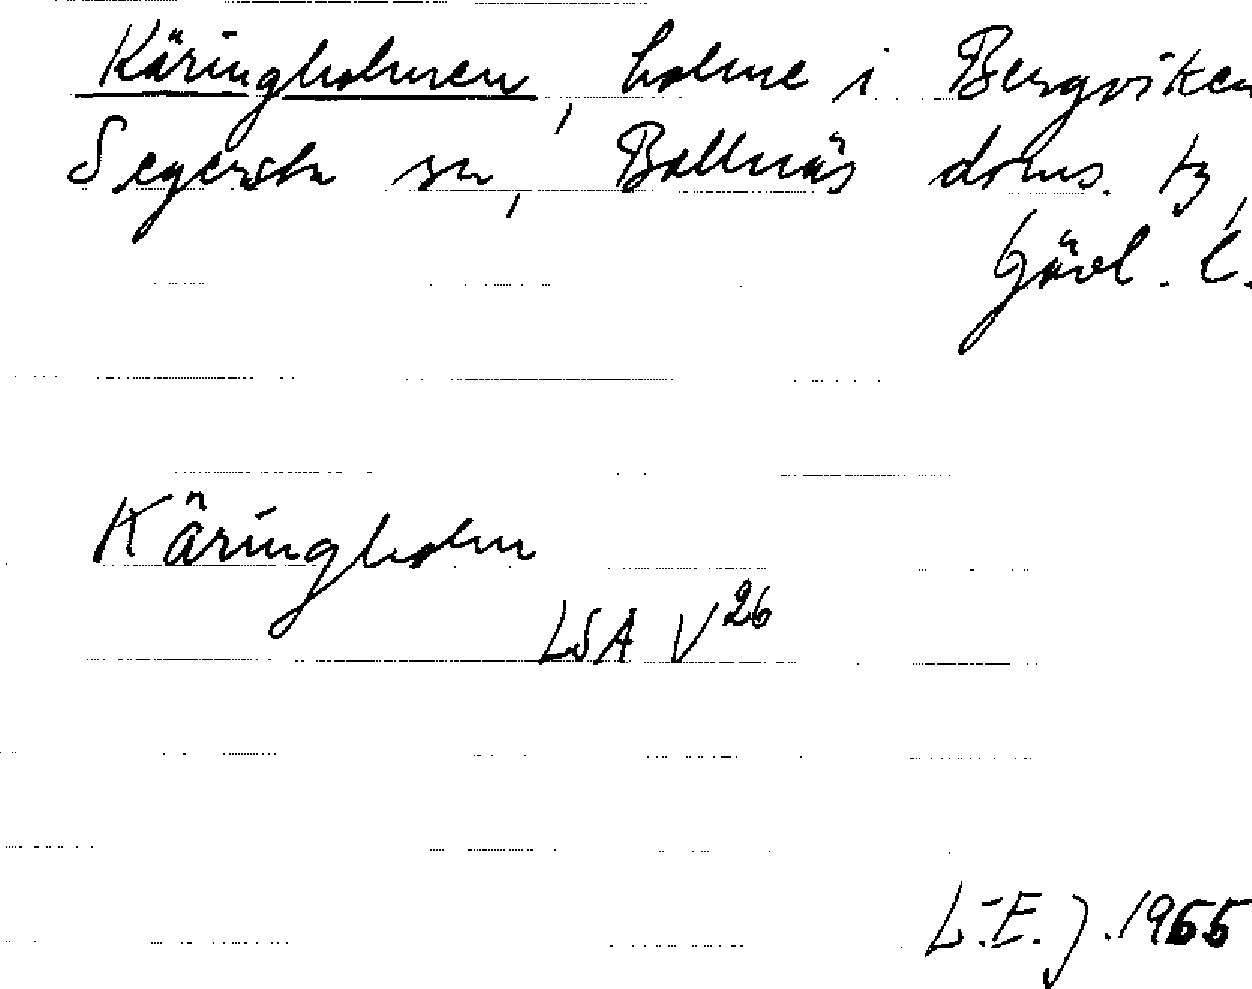 Käringholmen, holme i Bergviken
Segersta sn, Bollnäs doms. tg,
Gävl. l.
Käringholm
LSA V 26
L.-E. J. 1955